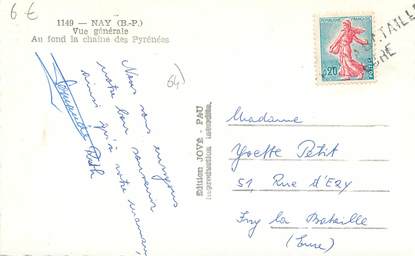 6 €
1149 - NAY (B.-P.)
Vue générale
Au fond la chaîne des Pyrénées
Nous vous envoyons
notre bon souvenir
ainsi qu'à votre maman,
64
Edition JOVÉ - PAU
Reproduction interdite
REPUBLIQUE FRANÇAISE
0,20
POSTES
TAILLE
Madame
Yvette Petit
51, Rue d'Ezy
Ivry la Bataille
(Eure)